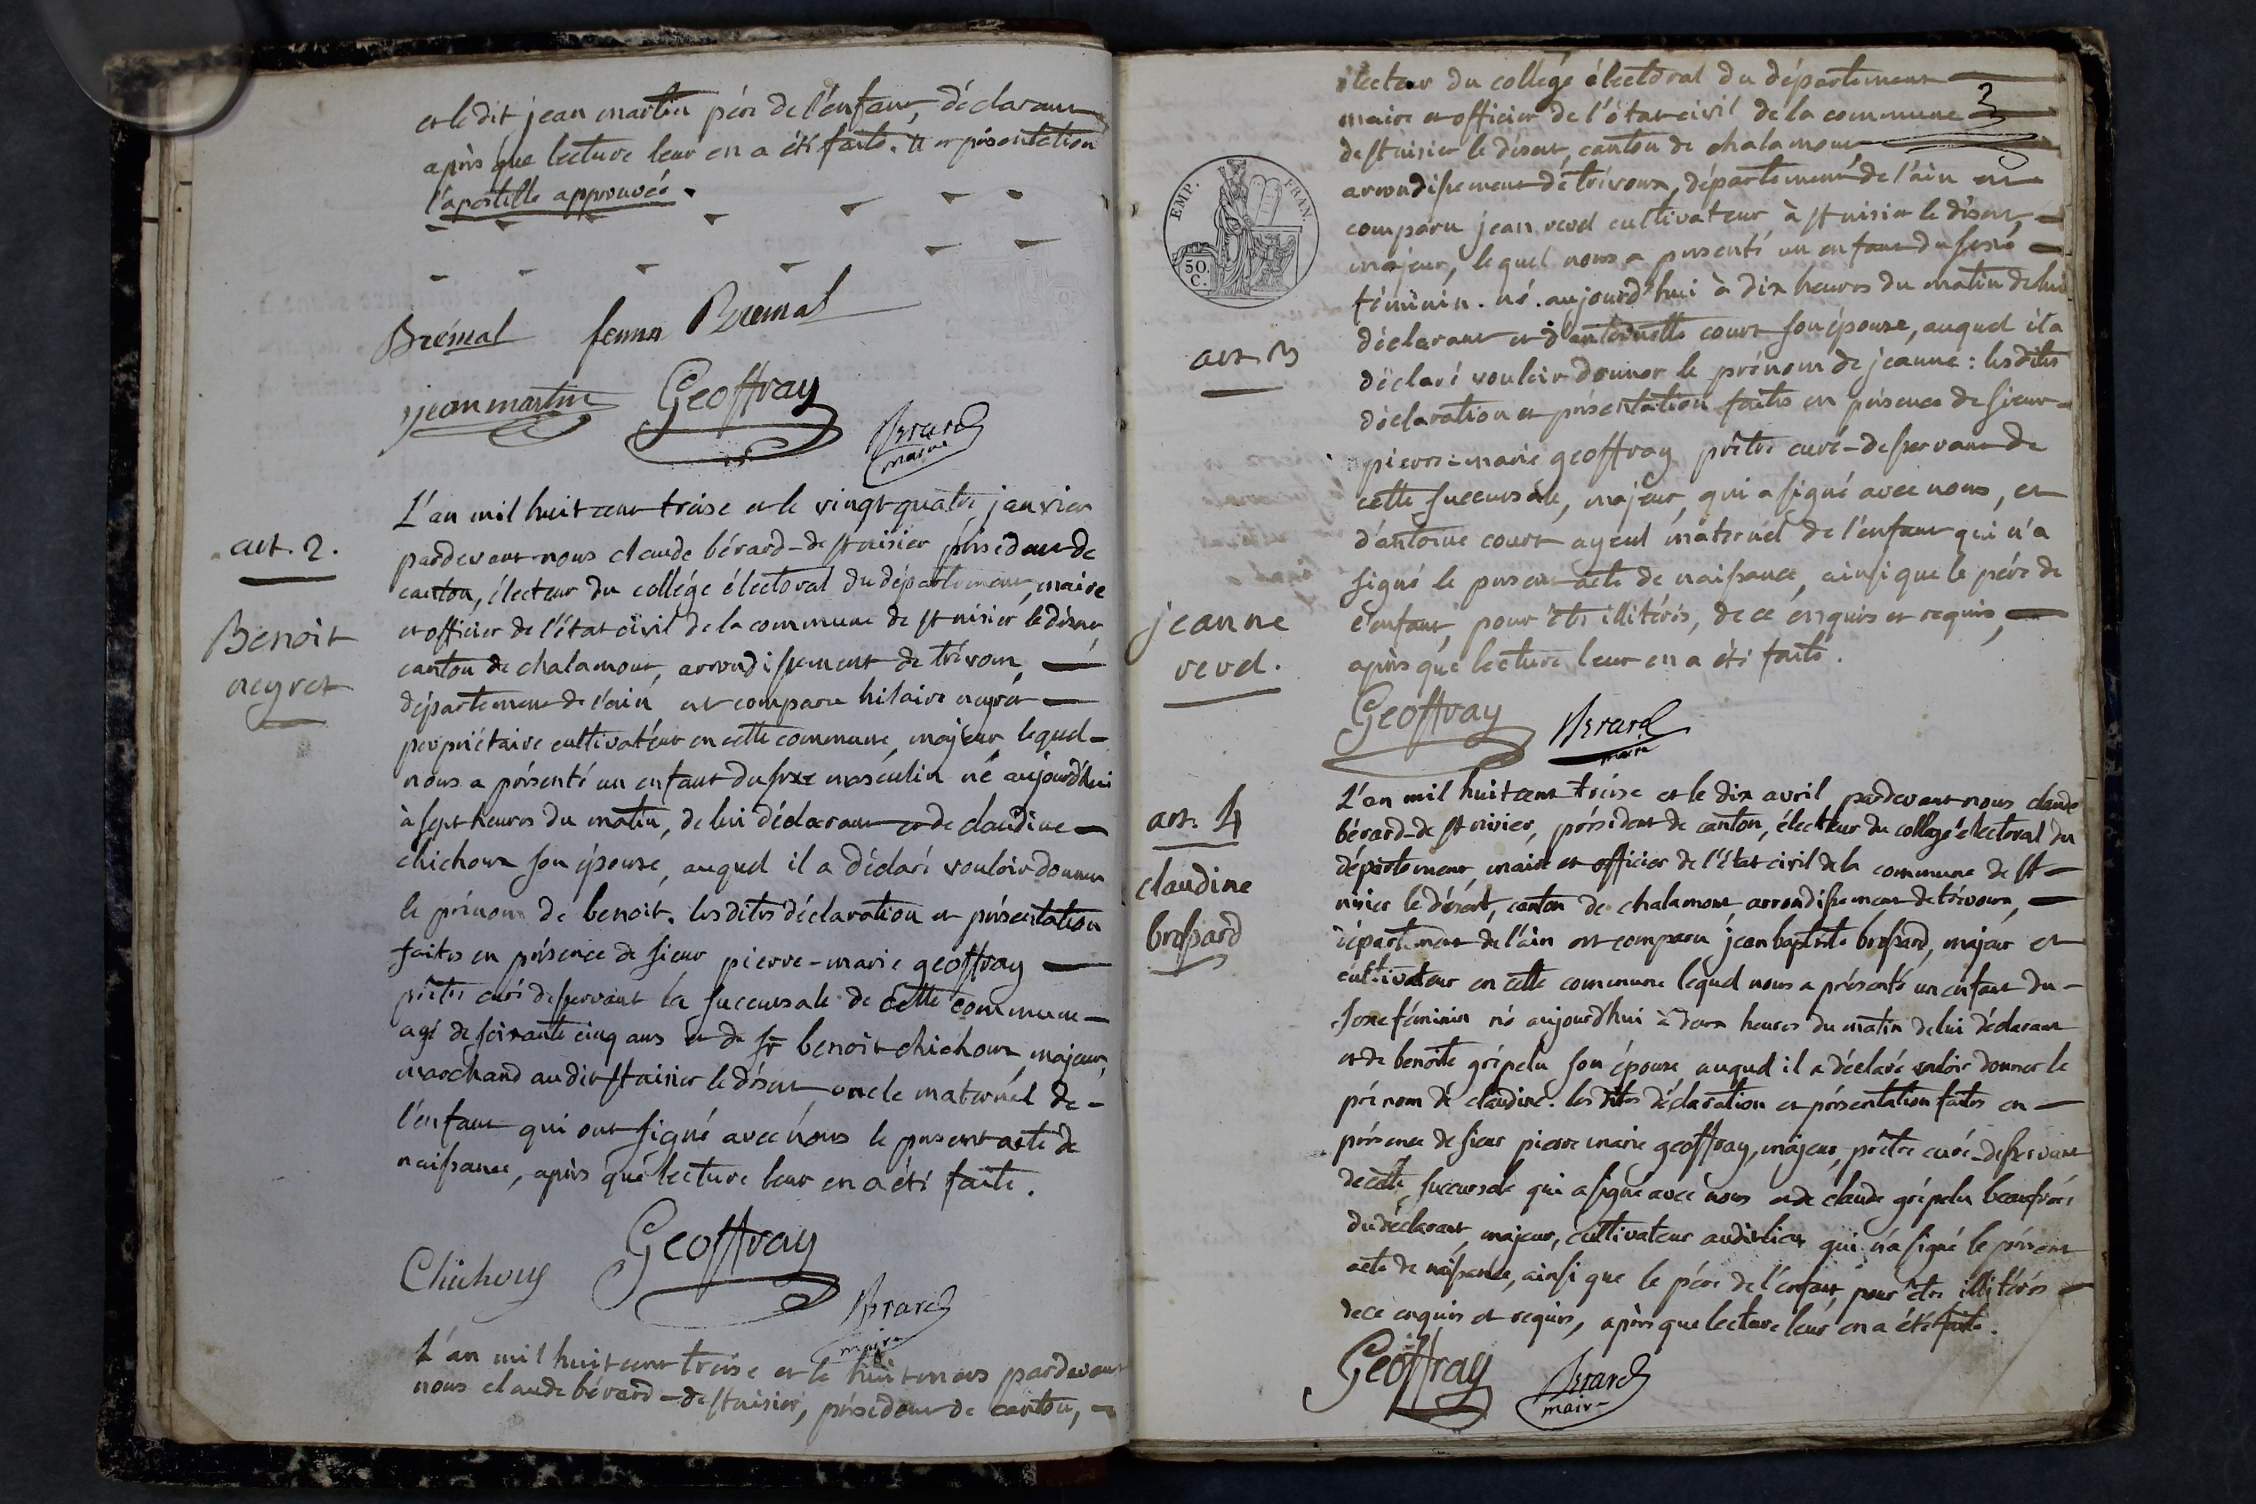 et le dit jean martin pére de l'enfant, déclarant
après que lecture leur en a été faite. # et présentation
l'apostille approuvée.
Brémal femme Bremal
jean martin Geoffray
Berard
maire
art. 2.
Benoit
neyret
L'an mil huit cent treise et le vingt quatre janvier
pardevant nous claude bérard-de st nisier président de
canton, électeur du collége électoral du département, maire
et officier de l'état civil de la commune de st nisier le désert
canton de chalamont, arrondissement de trévoux,
département de l'ain est comparu hilaire neyret
propriétaire cultivatéur en cette commune, majeur, lequel
nous a présenté un enfant du sexe masculin né aujourd'hui
à sept heures du matin, de lui déclarant et de claudine
chichoux son épouse, auquel il a déclaré vouloir donner
le prénom de benoit. les dites déclaration et présentation
faites en présence de sieur pierre-marie geoffray
prêtre curé desservant la succursale de cette commune
agé de soixante cinq ans et de sr benoit chichoux, majeur,
marchand au dit st nisier le désert, oncle maternel de
l'enfant qui ont signé avec nous le present acte de
naissance, après que lecture leur en a été faite.
Chichoux Geoffray
Berard
maire
L'an mil huit cent treise et le huit mars pardevant
nous claude bérard-de st nisier, président de canton,
3
électeur du collége électoral du département
maire et officier de l'état civil de la commune
de st nisier le désert, canton de chalamont
arrondissement de trévoux, département de l'ain est
comparu jean revel cultivateur à st nisier le désert,
majeur, lequel nous a présenté un enfant du sexe
féminin. né. aujourd'hui à dix heures du matin de lui
déclarant et d'antoinette court son épouse, auquel il a
déclaré vouloir donner le prénom de jeanne: les dites
déclaration et présentation faites en présence de sieur
pierre-marie geoffray prêtre curé-desservant de
cette succursale, majeur, qui a signé avec nous, et
d'antoine court ayeul maternel de l'enfant qui n'a
signé le present acte de naissance, ainsi que le pére de
l'enfant, pour être illitérés, de ce enquis et requis,
après que lecture leur en a été faite.
EMP. FRAN.
50.
C.
art. 3
jeanne
revel.
Geoffray Berard
maire
art. 4
claudine
brossard
L'an mil huit cent treise et le dix avril, pardevant nous claude
bérard-de st nisier, président de canton, électeur du collége électoral du
département, maire et officier de l'état civil de la commune de st
nisier le désert, canton de chalamont arrondissement de trévoux,
département de l'ain est comparu jean baptiste brossard, majeur et
cultivateur en cette commune lequel nous a présenté un enfant du
sexe féminin né aujourd'hui à deux heures du matin de lui déclarant
et de benoite grépelu son épouse auquel il a déclaré vouloir donner le
prénom de claudine. les dites déclaration et présentation faites en
présence de sieur pierre marie geoffray, majeur, prêtre curé-desservant
de cette succursale qui a signé avec nous et de claude grépelu beaufrère
du déclarant, majeur, cultivateur audit lieu qui n'a signé le présent
acte de naissance, ainsi que le pére de l'enfant, pour être illitérés
de ce enquis et requis, après que lecture leur en a été faite.
Geoffray Berard
maire